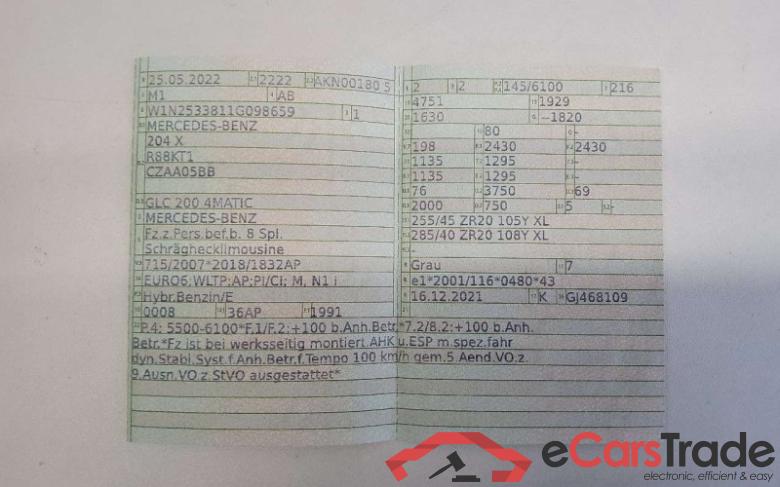 25.05.2022 2222 AKN00180 5
M1 AB
W1N2533811G098659 1
MERCEDES-BENZ
204 X
R88KT1
CZAA05BB
GLC 200 4MATIC
MERCEDES-BENZ
Fz.z.Pers.bef.b. 8 Spl.
Schräghecklimousine
715/2007*2018/1832AP
EURO6;WLTP;AP;PI/CI; M, N1 I
Hybr.Benzin/E
0008 36AP 1991
2 2 145/6100 216
4751 1929
1630 –1820
80 -
198 2430 2430
1135 1295 -
1135 1295 -
76 3750 69
2000 750 5 -
255/45 ZR20 105Y XL
285/40 ZR20 108Y XL
-
Grau 7
e1*2001/116*0480*43
16.12.2021 K GJ468109
P.4: 5500-6100*F.1/F.2:+100 b.Anh.Betr.*7.2/8.2:+100 b.Anh.
Betr.*Fz ist bei werksseitig montiert.AHK u.ESP m.spez.fahr
dyn.Stabi.Syst.f.Anh.Betr.f.Tempo 100 km/h gem.5.Aend.VO.z.
9.Ausn.VO.z.StVO ausgestattet*
eCarsTrade
electronic, efficient & easy